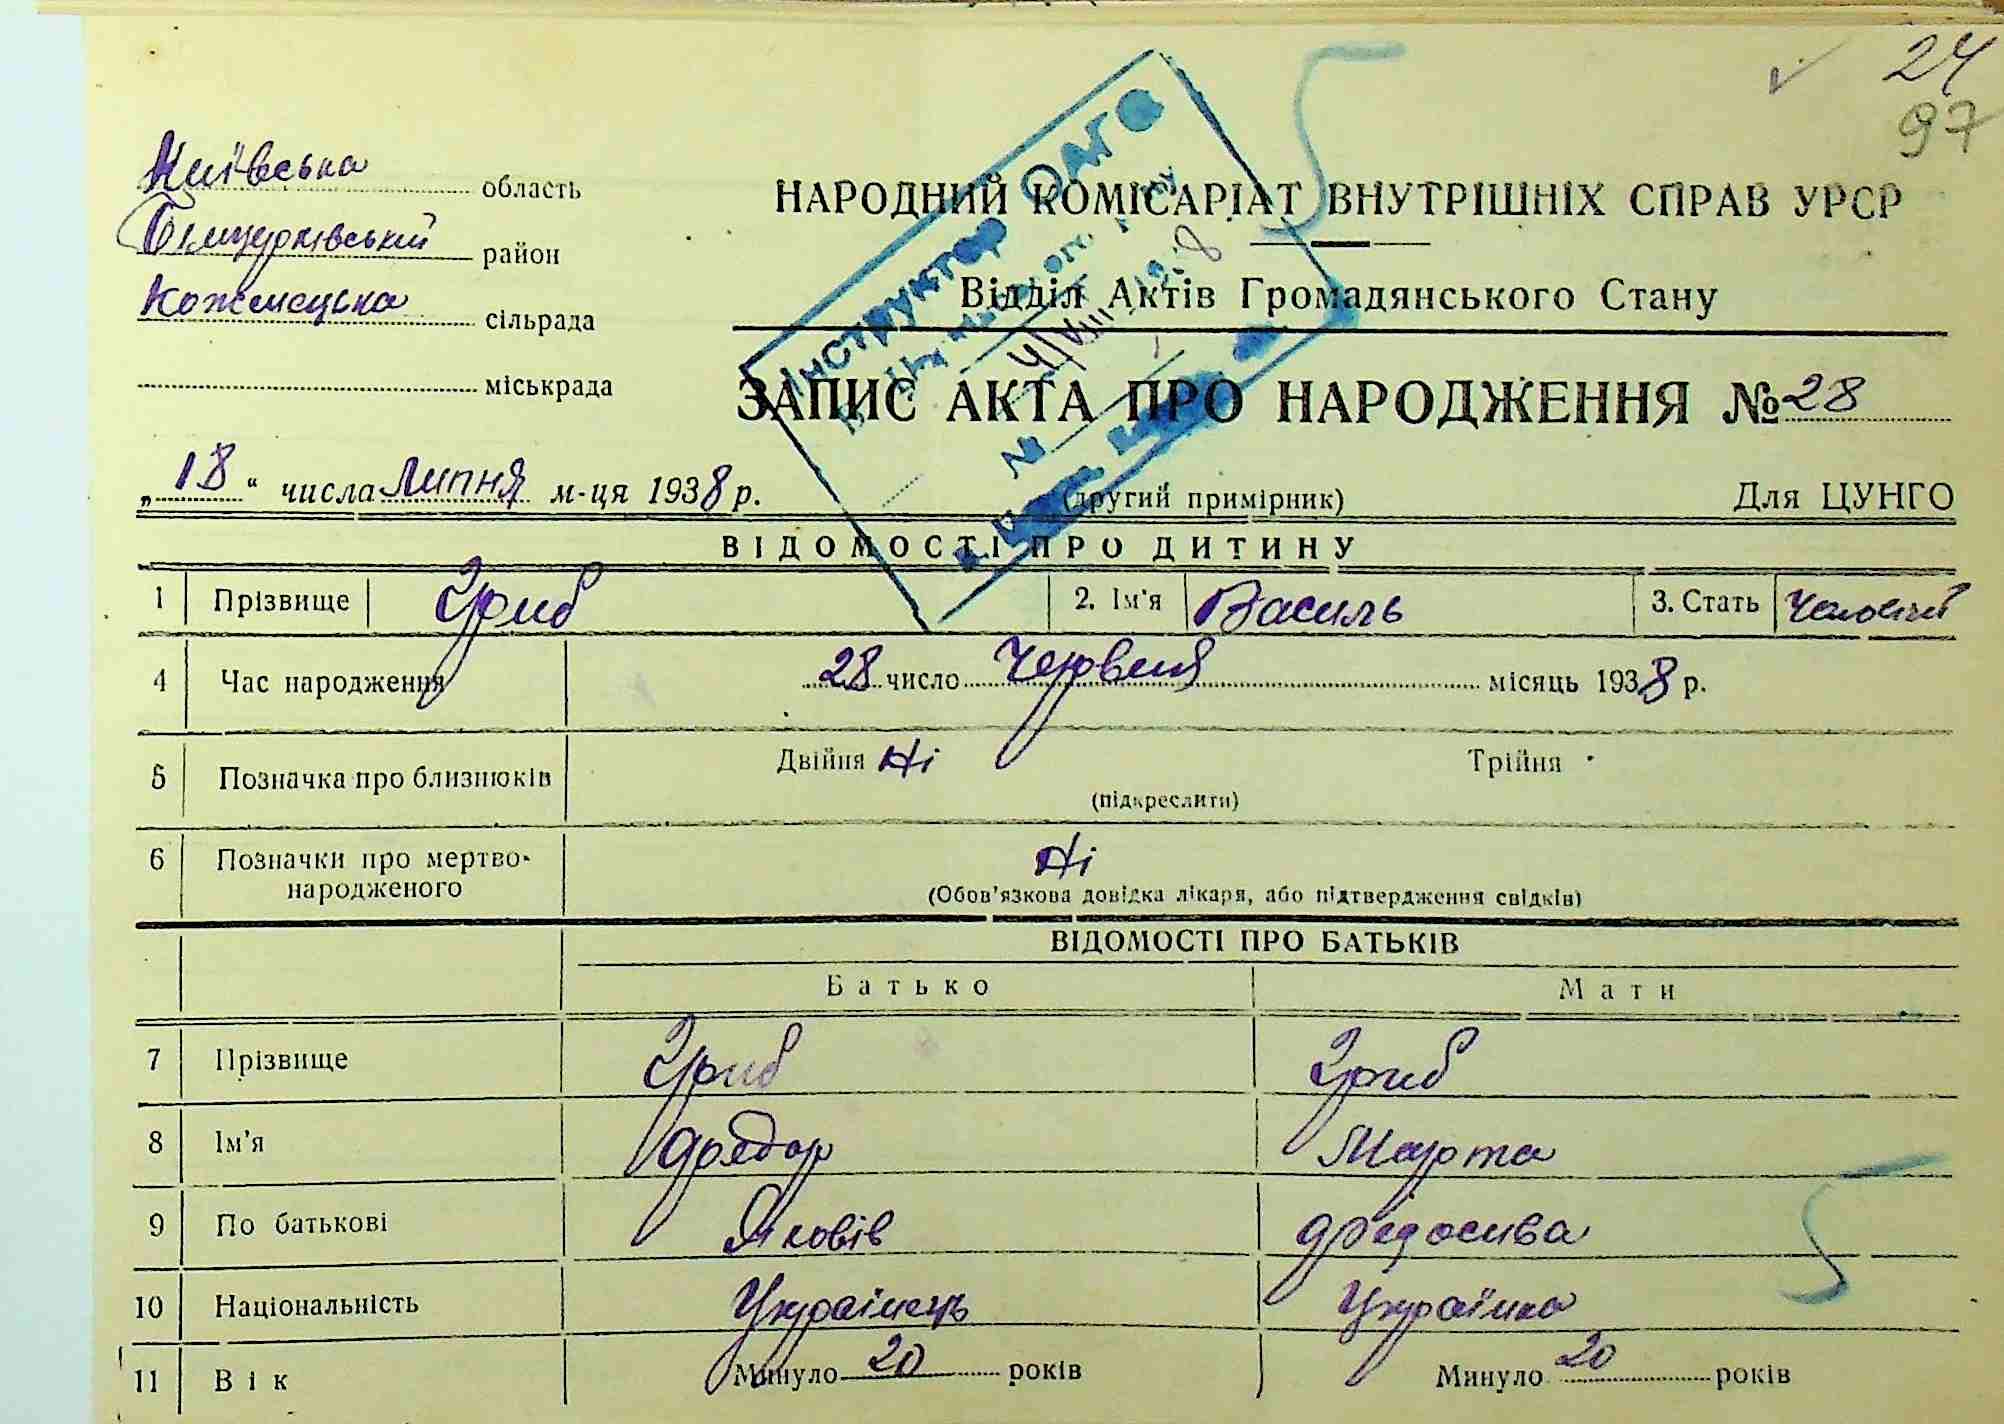 24
97
Київська область
Білоцерківський район
сільрада
міськрада
НАРОДНИЙ КОМІСАРІАТ ВНУТРІШНІХ СПРАВ УРСР
Відділ Актів Громадянського Стану
Інструктор ОАГС
ЗАПИС АКТА ПРО НАРОДЖЕННЯ № 28
„18“ числа Липня м-ця 1938 р.
(другий примірник)
Для ЦУНГО
ВІДОМОСТІ ПРО ДИТИНУ
1 Прізвище Гриб 2. Ім'я Василь 3. Стать
4 Час народження 28 число Червня місяць 1938 р.
5 Позначка про близнюків Двійня Ні Трійня
(підкреслити)
6 Позначки про мертво-
народженого Ні
(Обов'язкова довідка лікаря, або підтвердження свідків)
ВІДОМОСТІ ПРО БАТЬКІВ
Батько Мати
7 Прізвище Гриб Гриб
8 Ім'я Фядор Марта
9 По батькові Яковів Федосива
10 Національність Українець Українка
11 Вік Минуло 20 років Минуло 20 років